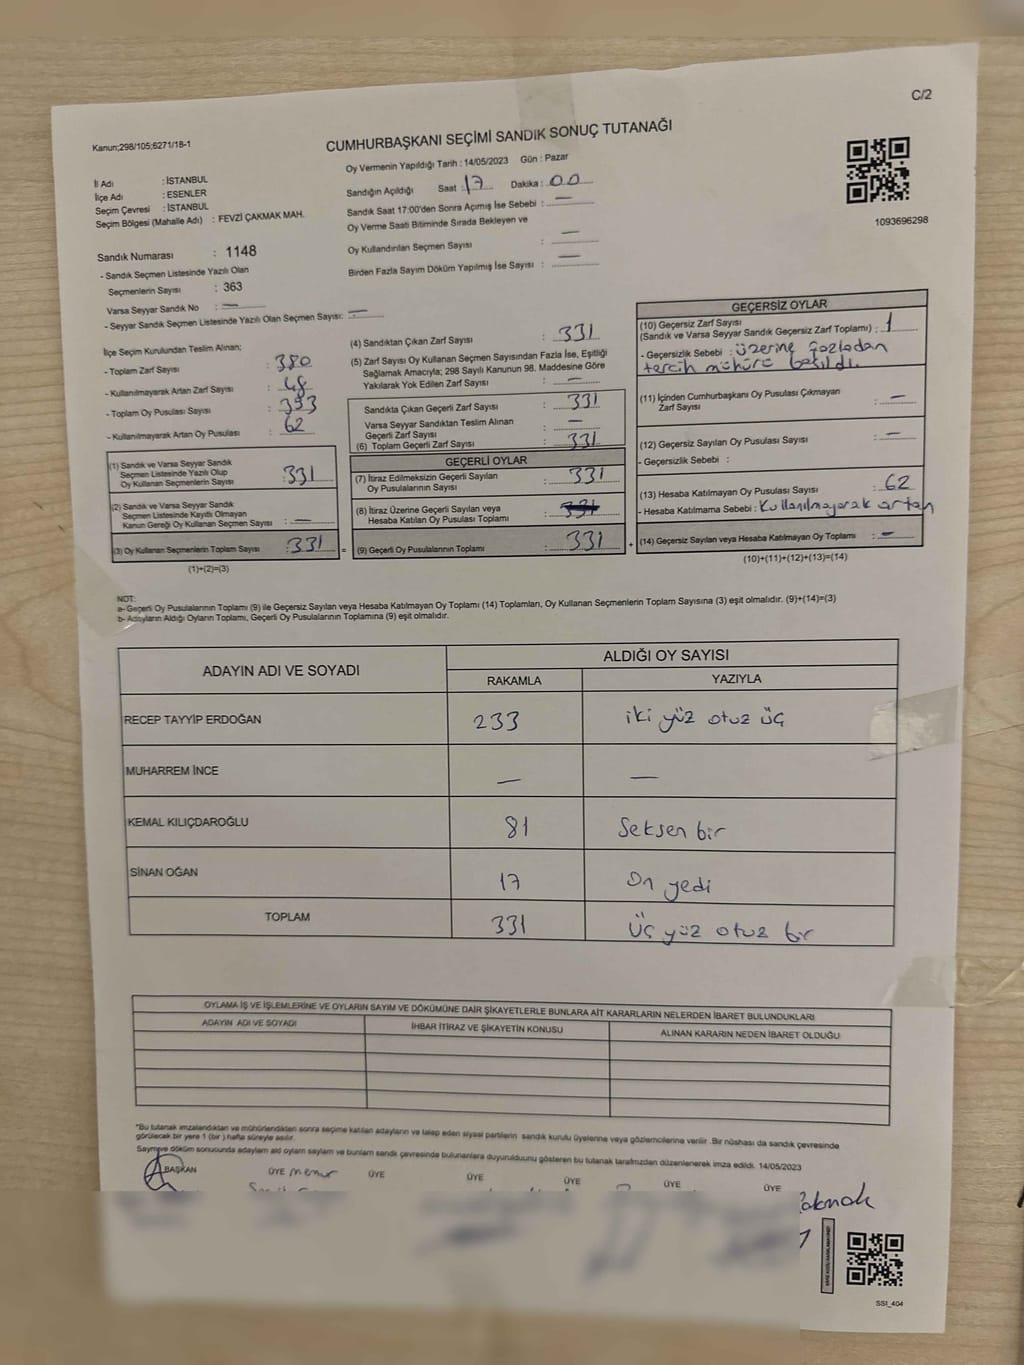 C/2
Kanun;298/105;6271/18-1
CUMHURBAŞKANI SEÇİMİ SANDIK SONUÇ TUTANAĞI
Oy Vermenin Yapıldığı Tarih : 14/05/2023 Gün : Pazar
İl Adı : İSTANBUL
İlçe Adı : ESENLER
Seçim Çevresi : İSTANBUL
Seçim Bölgesi (Mahalle Adı) : FEVZİ ÇAKMAK MAH.
Sandığın Açıldığı Saat : 17 Dakika : 00
Sandık Saat 17:00'den Sonra Açımış İse Sebebi : —
Oy Verme Saati Bitiminde Sırada Bekleyen ve
Oy Kullandırılan Seçmen Sayısı : —
Birden Fazla Sayım Döküm Yapılmış İse Sayısı : —
1093696298
Sandık Numarası : 1148
- Sandık Seçmen Listesinde Yazılı Olan
Seçmenlerin Sayısı : 363
Varsa Seyyar Sandık No : —
- Seyyar Sandık Seçmen Listesinde Yazılı Olan Seçmen Sayısı: —
İlçe Seçim Kurulundan Teslim Alınan;
- Toplam Zarf Sayısı : 380
- Kullanılmayarak Artan Zarf Sayısı : 48
- Toplam Oy Pusulası Sayısı : 393
- Kullanılmayarak Artan Oy Pusulası : 62
(1) Sandık ve Varsa Seyyar Sandık
Seçmen Listesinde Yazılı Olup
Oy Kullanan Seçmenlerin Sayısı : 331
(2) Sandık ve Varsa Seyyar Sandık
Seçmen Listesinde Kayıtlı Olmayan
Kanun Gereği Oy Kullanan Seçmen Sayısı : —
(3) Oy Kullanan Seçmenlerin Toplam Sayısı : 331 =
(1)+(2)=(3)
(4) Sandıktan Çıkan Zarf Sayısı : 331
(5) Zarf Sayısı Oy Kullanan Seçmen Sayısından Fazla İse, Eşitliği
Sağlamak Amacıyla; 298 Sayılı Kanunun 98. Maddesine Göre
Yakılarak Yok Edilen Zarf Sayısı : —
Sandıkta Çıkan Geçerli Zarf Sayısı : 331
Varsa Seyyar Sandıktan Teslim Alınan
Geçerli Zarf Sayısı : —
(6) Toplam Geçerli Zarf Sayısı : 331
GEÇERLİ OYLAR
(7) İtiraz Edilmeksizin Geçerli Sayılan
Oy Pusulalarının Sayısı : 331
(8) İtiraz Üzerine Geçerli Sayılan veya
Hesaba Katılan Oy Pusulası Toplamı :
(9) Geçerli Oy Pusulalarının Toplamı : 331 +
GEÇERSİZ OYLAR
(10) Geçersiz Zarf Sayısı
(Sandık ve Varsa Seyyar Sandık Geçersiz Zarf Toplamı) : 1
- Geçersizlik Sebebi : üzerine fazladan
tercih mühürü basıldı.
(11) İçinden Cumhurbaşkanı Oy Pusulası Çıkmayan
Zarf Sayısı : —
(12) Geçersiz Sayılan Oy Pusulası Sayısı : —
- Geçersizlik Sebebi :
(13) Hesaba Katılmayan Oy Pusulası Sayısı : 62
- Hesaba Katılmama Sebebi : Kullanılmayarak artan
(14) Geçersiz Sayılan veya Hesaba Katılmayan Oy Toplamı : —
(10)+(11)+(12)+(13)=(14)
NOT:
a- Geçerli Oy Pusulalarının Toplamı (9) ile Geçersiz Sayılan veya Hesaba Katılmayan Oy Toplamı (14) Toplamları, Oy Kullanan Seçmenlerin Toplam Sayısına (3) eşit olmalıdır. (9)+(14)=(3)
b- Adayların Aldığı Oyların Toplamı, Geçerli Oy Pusulalarının Toplamına (9) eşit olmalıdır.
ADAYIN ADI VE SOYADI ALDIĞI OY SAYISI
RAKAMLA YAZIYLA
RECEP TAYYİP ERDOĞAN 233 iki yüz otuz üç
MUHARREM İNCE — —
KEMAL KILIÇDAROĞLU 81 Seksen bir
SİNAN OĞAN 17 On yedi
TOPLAM 331 Üç yüz otuz bir
OYLAMA İŞ VE İŞLEMLERİNE VE OYLARIN SAYIM VE DÖKÜMÜNE DAİR ŞİKAYETLERLE BUNLARA AİT KARARLARIN NELERDEN İBARET BULUNDUKLARI
ADAYIN ADI VE SOYADI İHBAR İTİRAZ VE ŞİKAYETİN KONUSU ALINAN KARARIN NEDEN İBARET OLDUĞU
*Bu tutanak imzalandıktan ve mühürlendikten sonra seçime katılan adayların ve talep eden siyasi partilerin sandık kurulu üyelerine veya gözlemcilerine verilir. Bir nüshası da sandık çevresinde
görülecek bir yere 1 (bir) hafta süreyle asılır.
Sayım ve döküm sonucunda adayların aldığı oyların sayıları ve bunların sandık çevresinde bulunanlara duyurulduğunu gösteren bu tutanak tarafımızdan düzenlenerek imza edildi. 14/05/2023
BAŞKAN ÜYE memur ÜYE ÜYE ÜYE ÜYE ÜYE
SSI_404